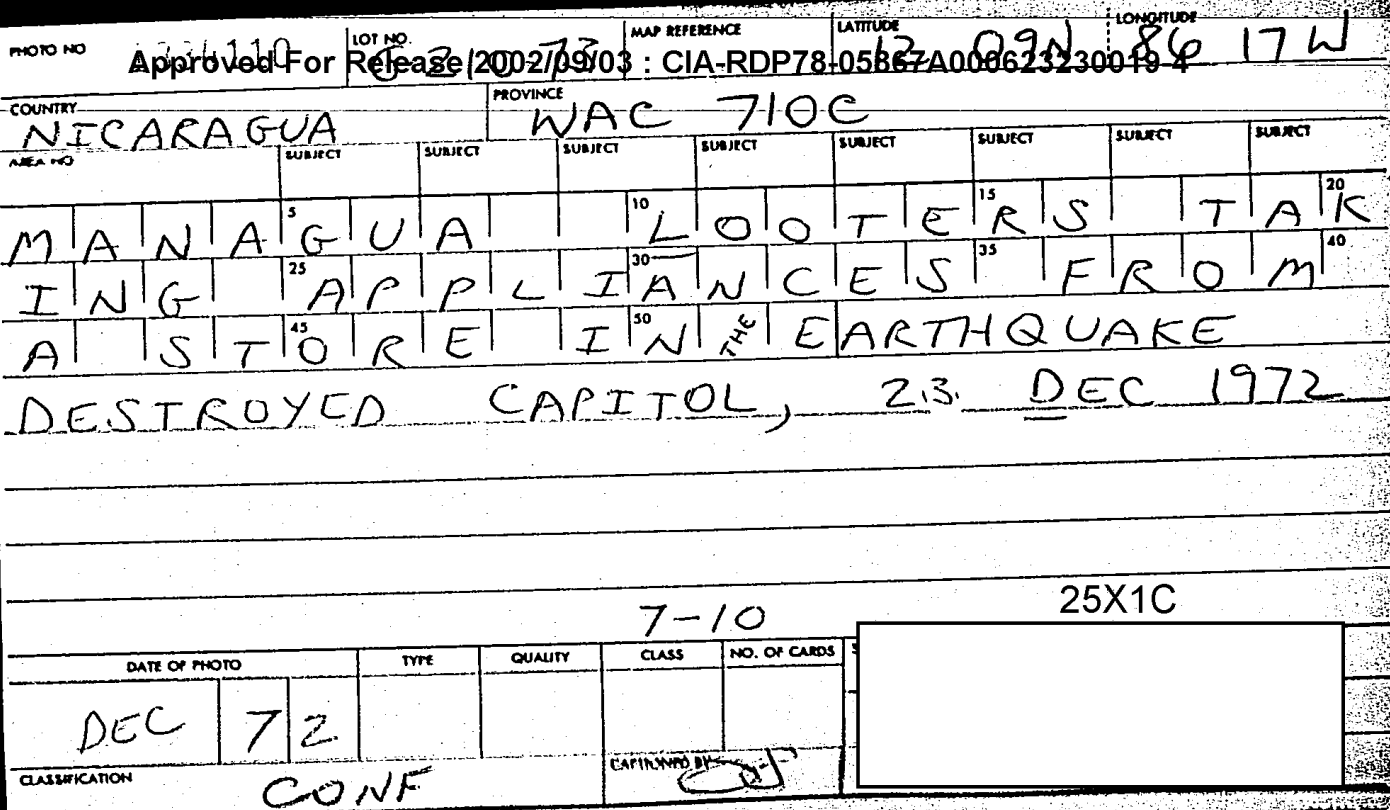 PHOTO NO LOT NO. MAP REFERENCE LATITUDE LONGITUDE
12 09N 86 17W
Approved For Release 2002/09/03 : CIA-RDP78-05867A000623230019-4
COUNTRY PROVINCE
NICARAGUA WAC 710C
AREA NO SUBJECT SUBJECT SUBJECT SUBJECT SUBJECT SUBJECT SUBJECT SUBJECT
5 10 15 20
MANAGUA LOOTERS TAK
25 30 35 40
ING APPLIANCES FROM
45 50
A STORE IN THE EARTHQUAKE
DESTROYED CAPITOL, 23. DEC 1972
25X1C
7-10
DATE OF PHOTO TYPE QUALITY CLASS NO. OF CARDS
DEC 72
CLASSIFICATION CONF CAPTIONED BY